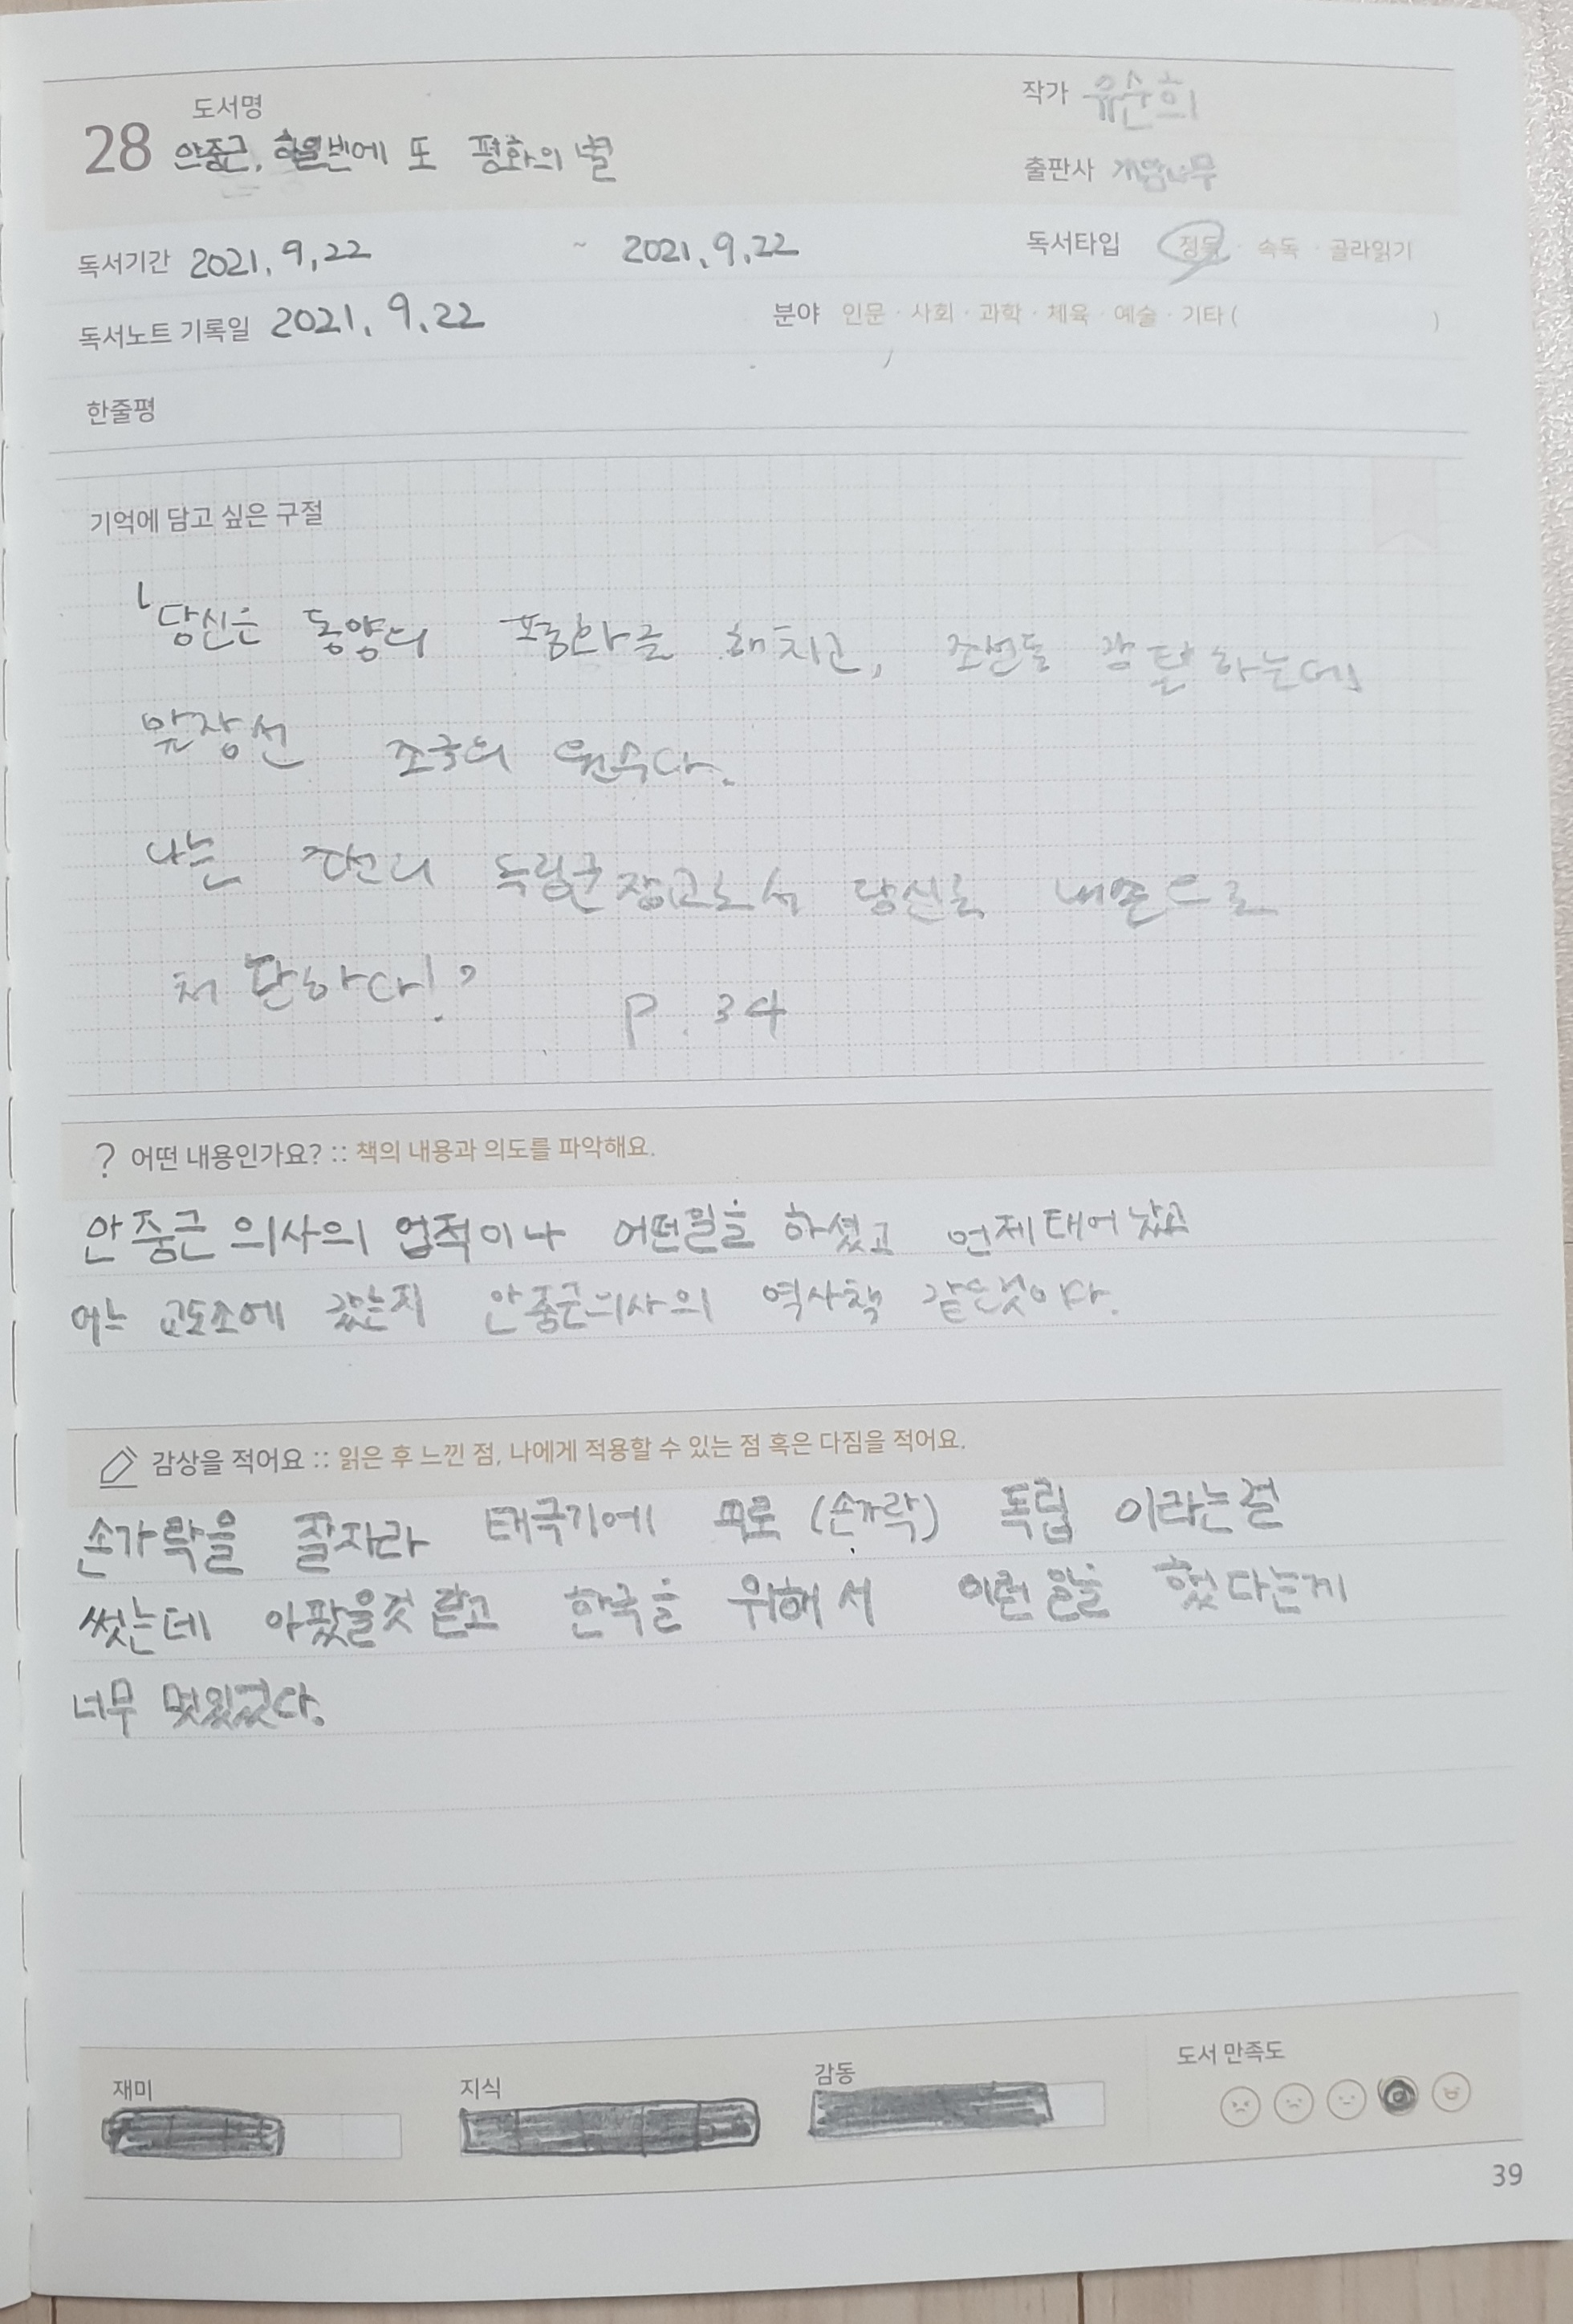 도서명
작가 유순희
28 안중근, 하얼빈에 또 평화의 별
출판사 개암나무
독서기간 2021. 9. 22 ~ 2021. 9. 22
독서타입 정독 · 속독 · 골라읽기
독서노트 기록일 2021. 9. 22
분야 인문 · 사회 · 과학 · 체육 · 예술 · 기타 ( )
한줄평
기억에 담고 싶은 구절
「당신은 동양의 평화를 해치고, 조선을 강탈하는데
앞장선 조국의 원수다.
나는 조선의 독립군 장교로서 당신을 내손으로
처단하다!
p. 34
? 어떤 내용인가요? :: 책의 내용과 의도를 파악해요.
안중근 의사의 업적이나 어떤일을 하셨고 언제태어났고
어느 교도소에 갔는지 안중근의사의 역사책 같은것이다.
감상을 적어요 :: 읽은 후 느낀 점, 나에게 적용할 수 있는 점 혹은 다짐을 적어요.
손가락을 잘자라 태극기에 피로 (손가락) 독립 이라는걸
썼는데 아팠을것 같고 한국을 위해서 이런 일을 했다는게
너무 멋있었다.
재미
지식
감동
도서 만족도
39